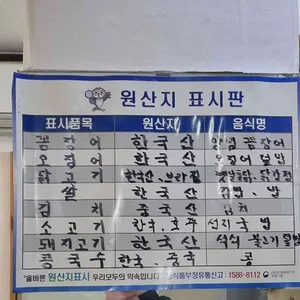 원산지 표시판
표시품목 원산지 음식명
꽃장어 한국산 양념 꽃장어
오징어 한국산 오징어 덮밥
닭고기 한국산, 브라질
쌀 한국산
김치 중국산 김치
소고기 한국, 호주 선지국밥
돼지고기 한국산 석쇠 불고기
콩국수 한국, 중국 콩
"올바른 원산지표시 우리모두의 약속입니다" 부정유통신고 : 1588-8112